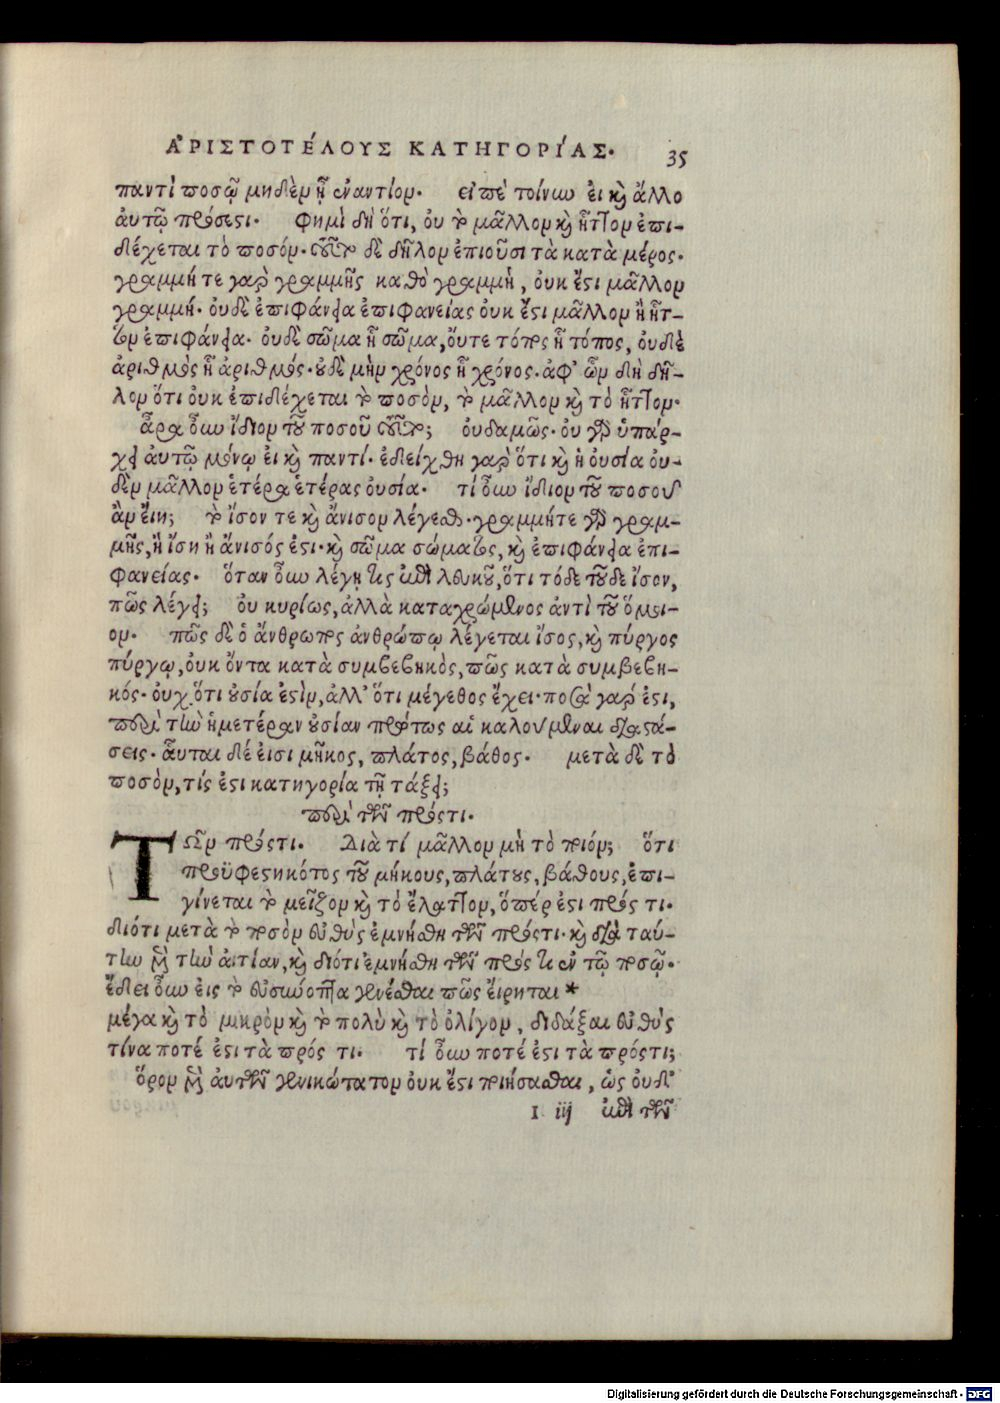 ἈΡΙΣΤΟΤΈΛΟΥΣ ΚΑΤΗΓΟΡΊΑΣ. 35
παντὶ ποσῷ μηδὲν ᾖ ἐναντίον. εἰπὲ τοίνυν εἰ καὶ ἄλλο
ἀυτῷ πρόσεστι. φημὶ δὴ ὅτι, ὀυ τὸ μᾶλλον καὶ ἧττον ἐπι-
δέχεται τὸ ποσόν. τοῦτο δὲ δῆλον ἐπιοῦσι τὰ κατὰ μέρος.
γραμμή τε γαρ γραμμῆς καθὸ γραμμὴ, ὀυκ ἔστι μᾶλλον
γραμμή. ὀυδὲ ἐπιφάνεια ἐπιφανείας ὀυκ ἔστι μᾶλλον ἢ ἧτ-
τον ἐπιφάνεια. ὀυδὲ σῶμα ἢ σῶμα, ὄυτε τόπος ἢ τόπος, ὀυδὲ
ἀριθμὸς ἢ ἀριθμός. ὀυδὲ μὴν χρόνος ἢ χρόνος. ἀφ' ὧν δὴ δῆ-
λον ὅτι ὀυκ ἐπιδέχεται τὸ ποσὸν, τὸ μᾶλλον καὶ τὸ ἧττον.
ἆρα ὄυν ἴδιον τοῦ ποσοῦ τοῦτο; ὀυδαμῶς. ὀυ γὰρ ὑπάρ-
χει ἀυτῷ μόνῳ εἰ καὶ παντί. ἐδείχθη γαρ ὅτι καὶ ἡ ὀυσία ὀυ-
δὲν μᾶλλον ἑτέρα ἑτέρας ὀυσία. τί ὄυν ἴδιον τοῦ ποσοῦ
ἂν ἔιη; τὸ ἴσον τε καὶ ἄνισον λέγεσθαι. γραμμήτε γὰρ γραμ-
μῆς, ἢ ἴση ἢ ἄνισός ἐστι. καὶ σῶμα σώματος, καὶ ἐπιφάνεια ἐπι-
φανείας. ὅταν ὄυν λέγῃ τις ἐπὶ λευκοῦ, ὅτι τόδε τοῦδε ἴσον,
πῶς λέγει; ὀυ κυρίως, ἀλλὰ καταχρώμενος ἀντὶ τοῦ ὅμοι-
ον. πῶς δὲ ὁ ἄνθρωπος ἀνθρώπῳ λέγεται ἴσος, καὶ πύργος
πύργῳ, ὀυκ ὄντα κατὰ συμβεβηκὸς, πῶς κατὰ συμβεβη-
κός. ὀυχ ὅτι ὀυσία ἐστὶν, ἀλλ' ὅτι μέγεθος ἔχει. ποσὰ γαρ ἐστι,
περὶ τὴν ἡμετέραν ὀυσίαν πρώτως αἱ καλούμεναι διαστά-
σεις. ἇυται δέ ἐισι μῆκος, πλάτος, βάθος. μετὰ δὲ τὸ
ποσὸν, τίς ἐστι κατηγορία τῇ τάξει;
περὶ τῶν πρόςτι.
ΤΩ͂ν πρόςτι. Διὰ τί μᾶλλον μὴ τὸ ποιόν; ὅτι
προϋφεστηκότος τοῦ μήκους, πλάτους, βάθους, ἐπι-
γίνεται τὸ μεῖζον καὶ τὸ ἔλαττον, ὅπέρ ἐστι πρός τι.
διότι μετὰ τὸ ποσὸν ἐυθὺς ἐμνήσθη τῶν πρόςτι. καὶ διὰ ταύ-
την μὲν τὴν ἀιτίαν, καὶ διότι ἐμνήσθη τῶν πρός τι ἐν τῷ ποσῷ.
ἔδει ὄυν ἐις τὸ ἐυσύνοπτα γενέσθαι πῶς ἔιρηται *
μέγα καὶ τὸ μικρὸν καὶ τὸ πολὺ καὶ τὸ ὀλίγον, διδάξαι ἐυθὺς
τίνα ποτέ ἐστι τὰ πρός τι. τί ὄυν ποτέ ἐστι τὰ πρόςτι;
ὅρον μὲν ἀυτῶν γενικώτατον ὀυκ ἔστι ποιήσασθαι, ὡς ὀυδ'
I iij ἐπὶ τῶν
Digitalisierung gefördert durch die Deutsche Forschungsgemeinschaft - DFG